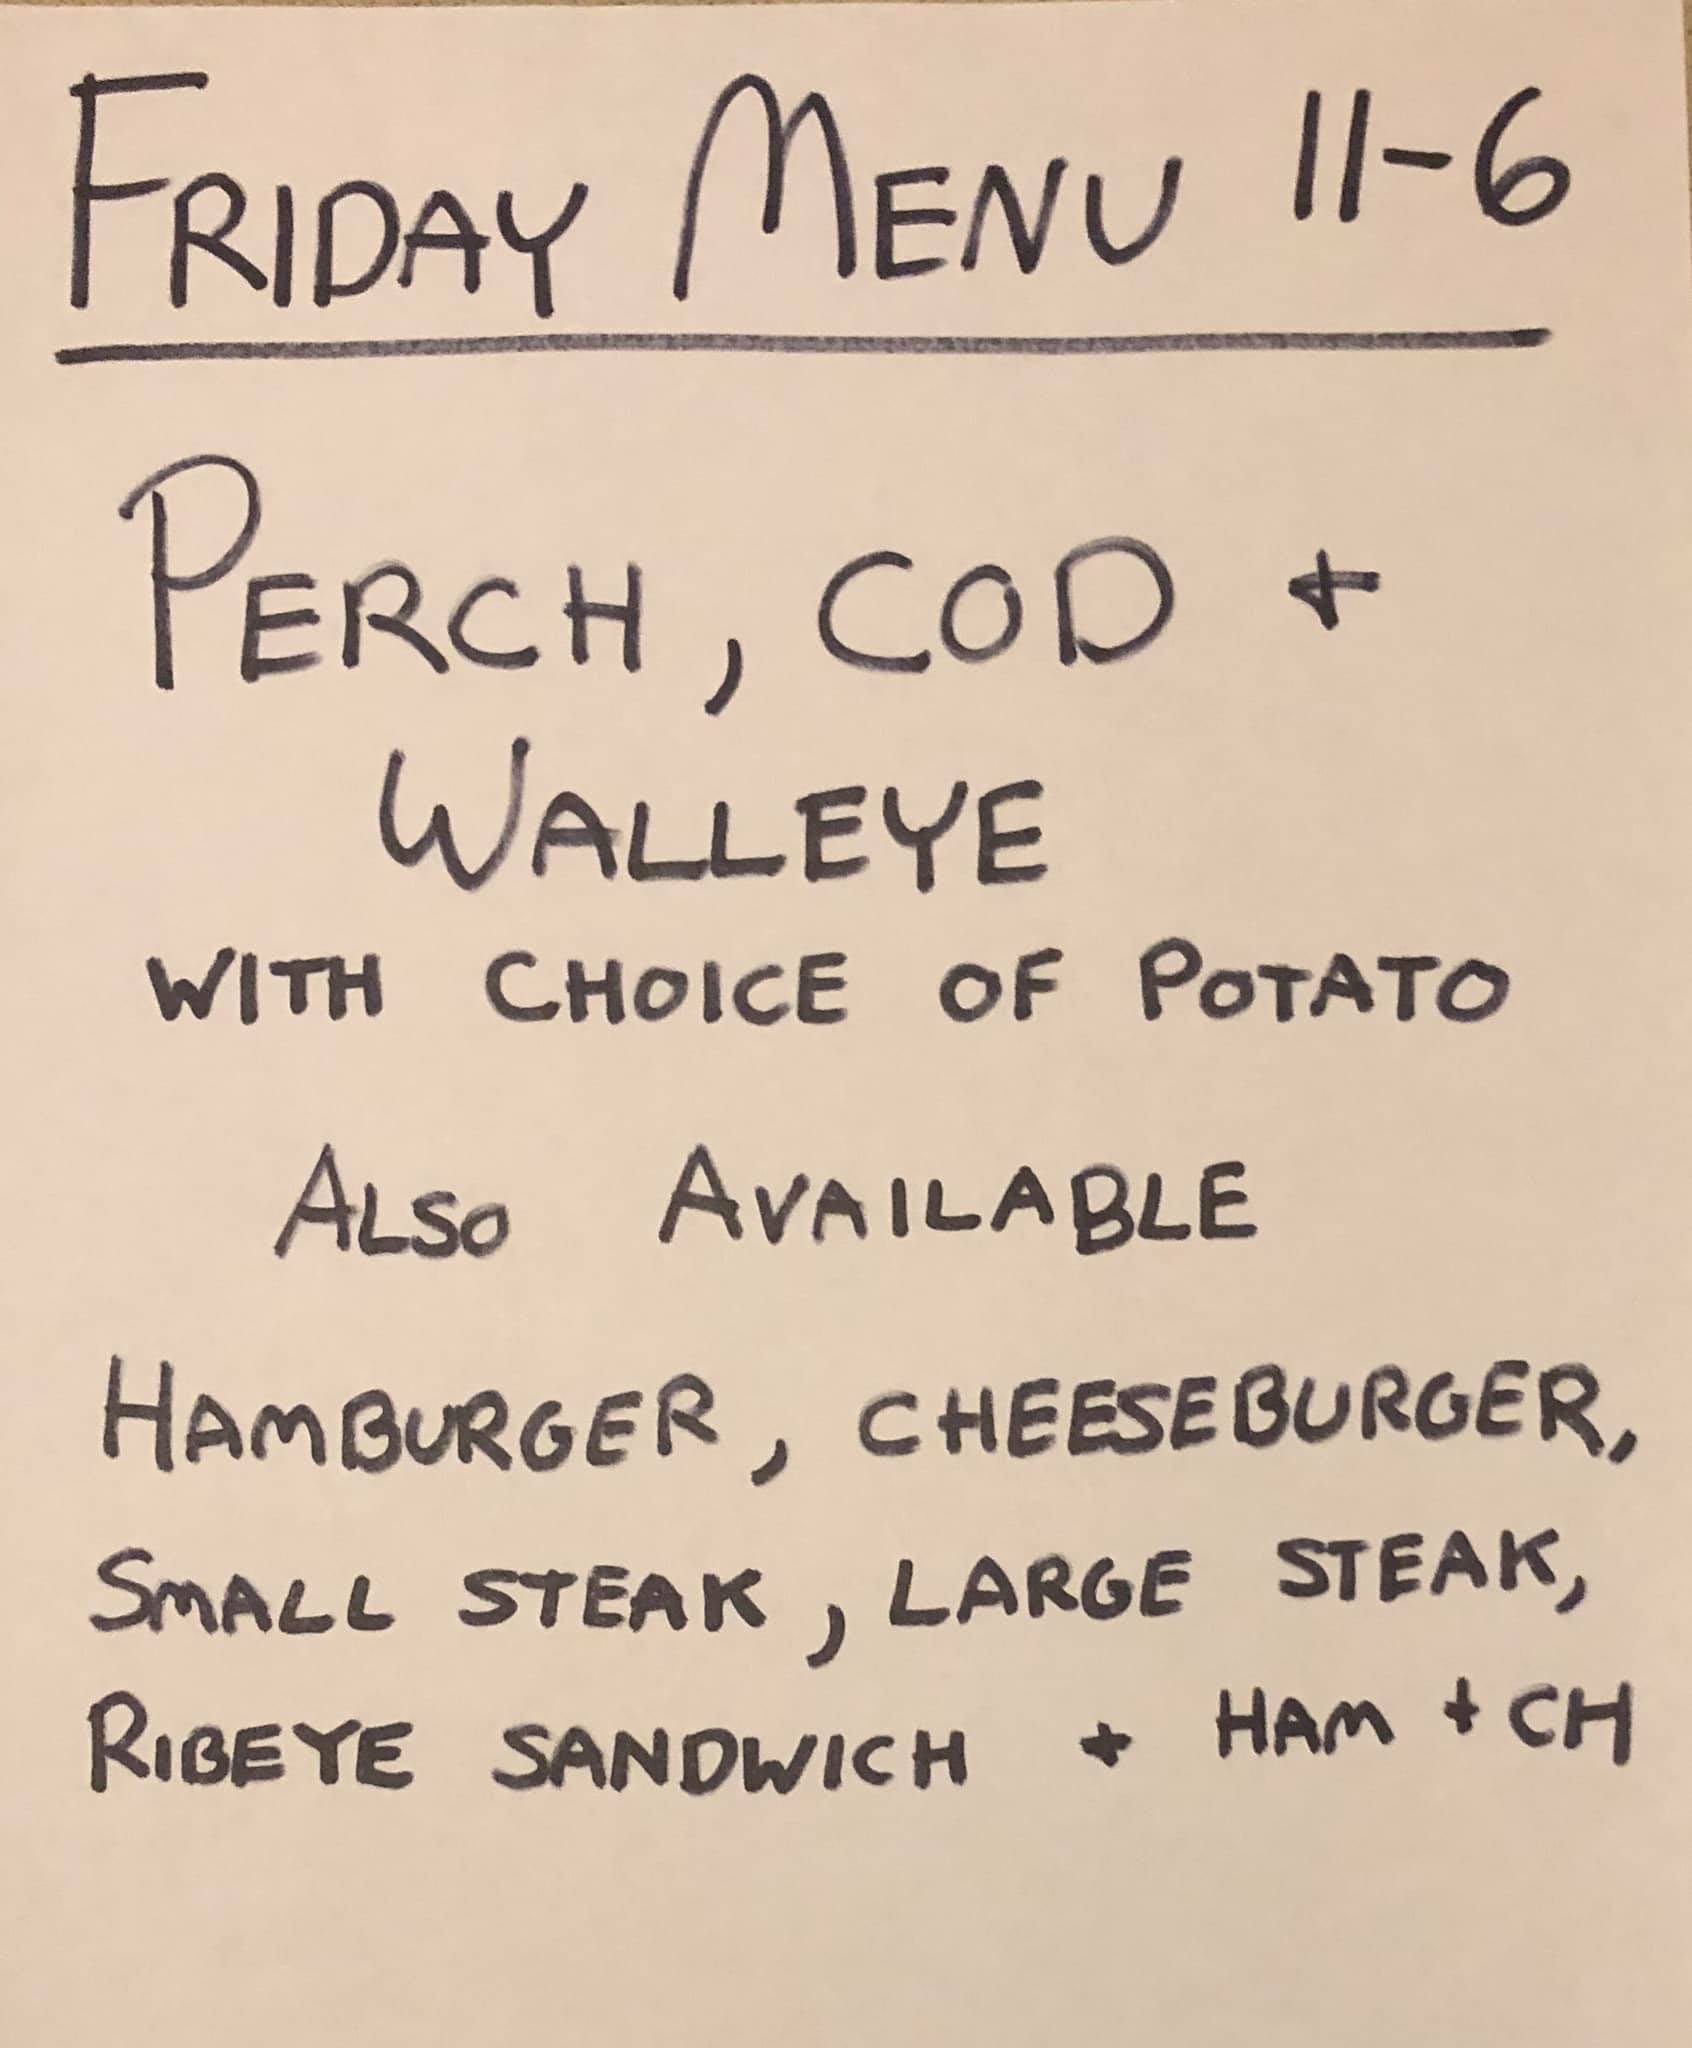 FRIDAY MENU 11-6
PERCH, COD +
WALLEYE
WITH CHOICE OF POTATO
ALSO AVAILABLE
HAMBURGER, CHEESEBURGER,
SMALL STEAK, LARGE STEAK,
RIBEYE SANDWICH + HAM + CH